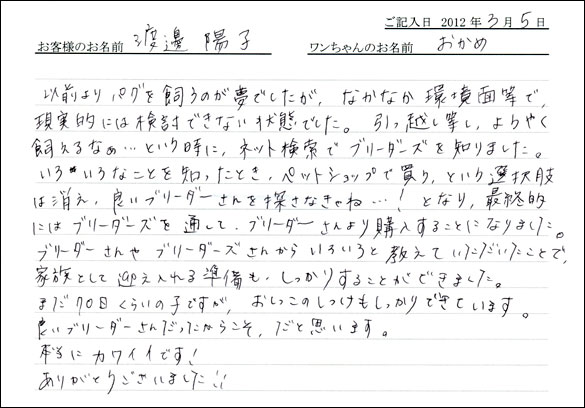 ご記入日 2012年3月5日
お客様のお名前 渡邊 陽子 ワンちゃんのお名前 おかめ
以前よりパグを飼うのが夢でしたが、なかなか環境面等で、
現実的には検討できない状態でした。引っ越し等し、ようやく
飼えるなぁ…という時に、ネット検索でブリーダーズを知りました。
いろいろなことを知ったとき、ペットショップで買う、という選択肢
は消え、良いブリーダーさんを探さなきゃね…!となり、最終的
にはブリーダーズを通して、ブリーダーさんより購入することになりました。
ブリーダーさんやブリーダーズさんからいろいろと教えていただいたことで、
家族として迎え入れる準備も、しっかりすることができました。
まだ70日くらいの子ですが、おしっこのしつけもしっかりできています。
良いブリーダーさんだったからこそ、だと思います。
本当にカワイイです!
ありがとうございました!!